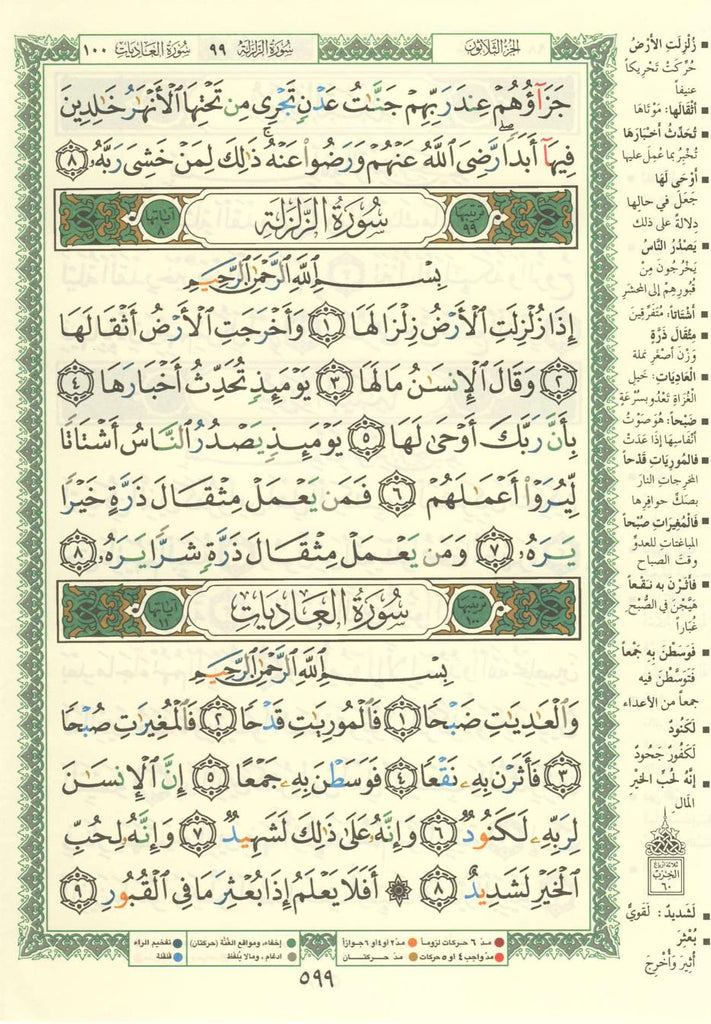 سورة العاديات ١٠٠
سورة الزلزلة ٩٩
الجزء الثلاثون
جَزَآؤُهُمْ عِندَ رَبِّهِمْ جَنَّٰتُ عَدْنٍ تَجْرِى مِن تَحْتِهَا ٱلْأَنْهَٰرُ خَٰلِدِينَ
فِيهَآ أَبَدًا ۖ رَّضِىَ ٱللَّهُ عَنْهُمْ وَرَضُوا۟ عَنْهُ ۚ ذَٰلِكَ لِمَنْ خَشِىَ رَبَّهُۥ ٨
ترتيبها ٩٩ سُورَةُ الزَّلْزَلَةِ آياتها ٨
بِسْمِ ٱللَّهِ ٱلرَّحْمَٰنِ ٱلرَّحِيمِ
إِذَا زُلْزِلَتِ ٱلْأَرْضُ زِلْزَالَهَا ١ وَأَخْرَجَتِ ٱلْأَرْضُ أَثْقَالَهَا
٢ وَقَالَ ٱلْإِنسَٰنُ مَا لَهَا ٣ يَوْمَئِذٍ تُحَدِّثُ أَخْبَارَهَا ٤
بِأَنَّ رَبَّكَ أَوْحَىٰ لَهَا ٥ يَوْمَئِذٍ يَصْدُرُ ٱلنَّاسُ أَشْتَاتًا
لِّيُرَوْا۟ أَعْمَٰلَهُمْ ٦ فَمَن يَعْمَلْ مِثْقَالَ ذَرَّةٍ خَيْرًا
يَرَهُۥ ٧ وَمَن يَعْمَلْ مِثْقَالَ ذَرَّةٍ شَرًّا يَرَهُۥ ٨
ترتيبها ١٠٠ سُورَةُ العَادِيَاتِ آياتها ١١
بِسْمِ ٱللَّهِ ٱلرَّحْمَٰنِ ٱلرَّحِيمِ
وَٱلْعَٰدِيَٰتِ ضَبْحًا ١ فَٱلْمُورِيَٰتِ قَدْحًا ٢ فَٱلْمُغِيرَٰتِ صُبْحًا
٣ فَأَثَرْنَ بِهِۦ نَقْعًا ٤ فَوَسَطْنَ بِهِۦ جَمْعًا ٥ إِنَّ ٱلْإِنسَٰنَ
لِرَبِّهِۦ لَكَنُودٌ ٦ وَإِنَّهُۥ عَلَىٰ ذَٰلِكَ لَشَهِيدٌ ٧ وَإِنَّهُۥ لِحُبِّ
ٱلْخَيْرِ لَشَدِيدٌ ٨ ۞ أَفَلَا يَعْلَمُ إِذَا بُعْثِرَ مَا فِى ٱلْقُبُورِ ٩
زُلْزِلَتِ الأَرْضُ
حُرِّكَتْ تَحْرِيكاً
عنيفاً
أثقالَها: مَوْتاها
تُحَدِّثُ أَخْبَارَهَا
تُخْبِرُ بما عُمِلَ عليها
أَوْحَى لَهَا
جَعَلَ في حالِها
دِلالةً على ذلك
يَصْدُرُ النَّاسُ
يَخْرُجُونَ مِنْ
قُبُورِهِمْ إلى المحْشَرِ
أشْتاتاً: مُتَفَرِّقينَ
مِثْقَالَ ذَرَّةٍ
وَزْنَ أصْغَرِ نملة
العَادِيَاتِ: خَيلِ
الْغُزاةِ تَعْدُو بِسُرْعَةٍ
ضَبْحاً: هُوَ صَوْتُ
أنْفاسِها إذَا عَدَتْ
فالمُورِيَاتِ قَدْحاً
المخرجاتِ النارَ
بصكِّ حَوافِرِها
فالمُغِيرَاتِ صُبْحاً
المباغتات للعدوِّ
وقت الصباح
فأَثَرْنَ به نَقْعاً
هَيَّجْنَ في الصُّبْح
غُبَاراً
فَوَسَطْنَ بِهِ جَمْعاً
فَتَوَسَّطْنَ فيه
جمعاً من الأعداء
لَكَنُودٌ
لَكَفُورٌ جَحُودٌ
إنَّهُ لحُبِّ الخَيْرِ
المَالِ
ثلاثة أرباع
الحزب
٦٠
لَشَديدٌ: لَقَويٌّ
بُعْثِرَ
أُثِيرَ وَأُخْرِجَ
مدّ ٦ حركات لزوماً مدّ ٢ أو ٤ أو ٦ جوازاً
مدّ واجب ٤ أو ٥ حركات مدّ حركتان
إخفاء، ومواقع الغُنَّة (حركتان) تفخيم الراء
ادغام، ومالا يُلفَظ قلقلة
٥٩٩